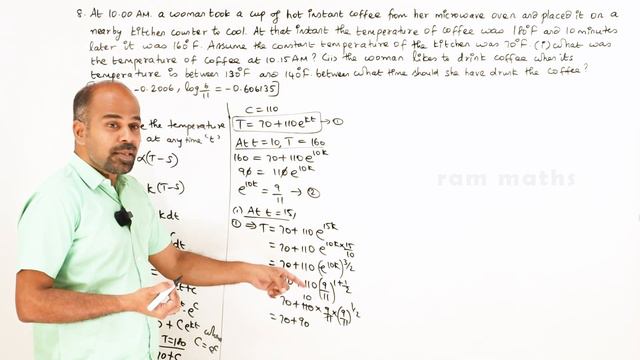 8. At 10.00 AM. a woman took a cup of hot instant coffee from her microwave oven and placed it on a
nearby kitchen counter to cool. At that instant the temperature of coffee was 180°F and 10 minutes
later it was 160°F. Assume the constant temperature of the kitchen was 70°F. (i) what was
the temperature of coffee at 10.15AM? (ii) the woman likes to drink coffee when its
temperature is between 130°F and 140°F. between what time should she have drunk the coffee?
-0.2006, log 6/11 = -0.606135]
the temperature
at any time 't'
∝(T-S)
k(T-S)
kdt
C = 110
T = 70+110e^{kt} → ①
At t=10, T=160
160 = 70+110e^{10k}
90 = 110e^{10k}
e^{10k} = 9/11 → ②
(i) At t=15,
① ⇒ T = 70+110e^{15k}
= 70+110e^{10k×15/10}
= 70+110(e^{10k})^{3/2}
110(9/11)^{1+1/2}
10
70+110×9/11×(9/11)^{1/2}
= 70+90
ram maths